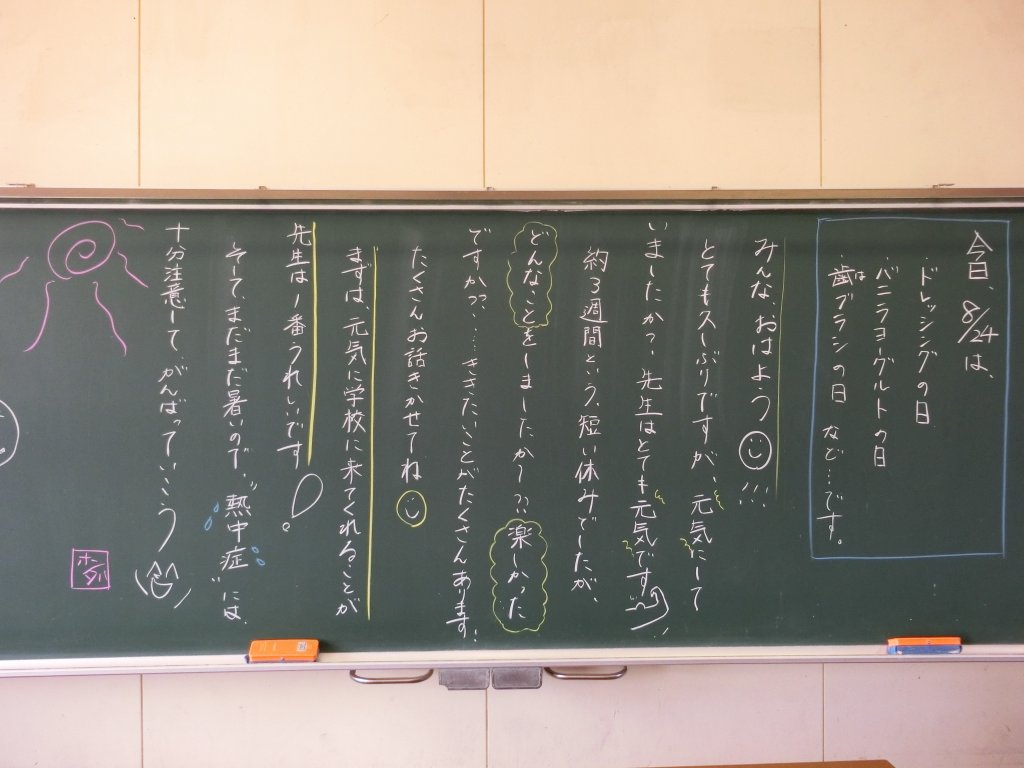 今日、8/24は、
・ドレッシングの日
・バニラヨーグルトの日
・歯ブラシの日 など…です。
は
みんな、おはよう
!!!
とても久しぶりですが、元気にして
いましたか?、先生はとても元気です
約3週間という、短い休みでしたが、
どんなことをしましたか〜?? 楽しかった
ですか??、…ききたいことがたくさんあります!
たくさんお話きかせてね
まずは、元気に学校に来てくれることが
先生は1番うれしいです!
そして、まだまだ暑いので、"熱中症"には
十分注意して、がんばっていこう